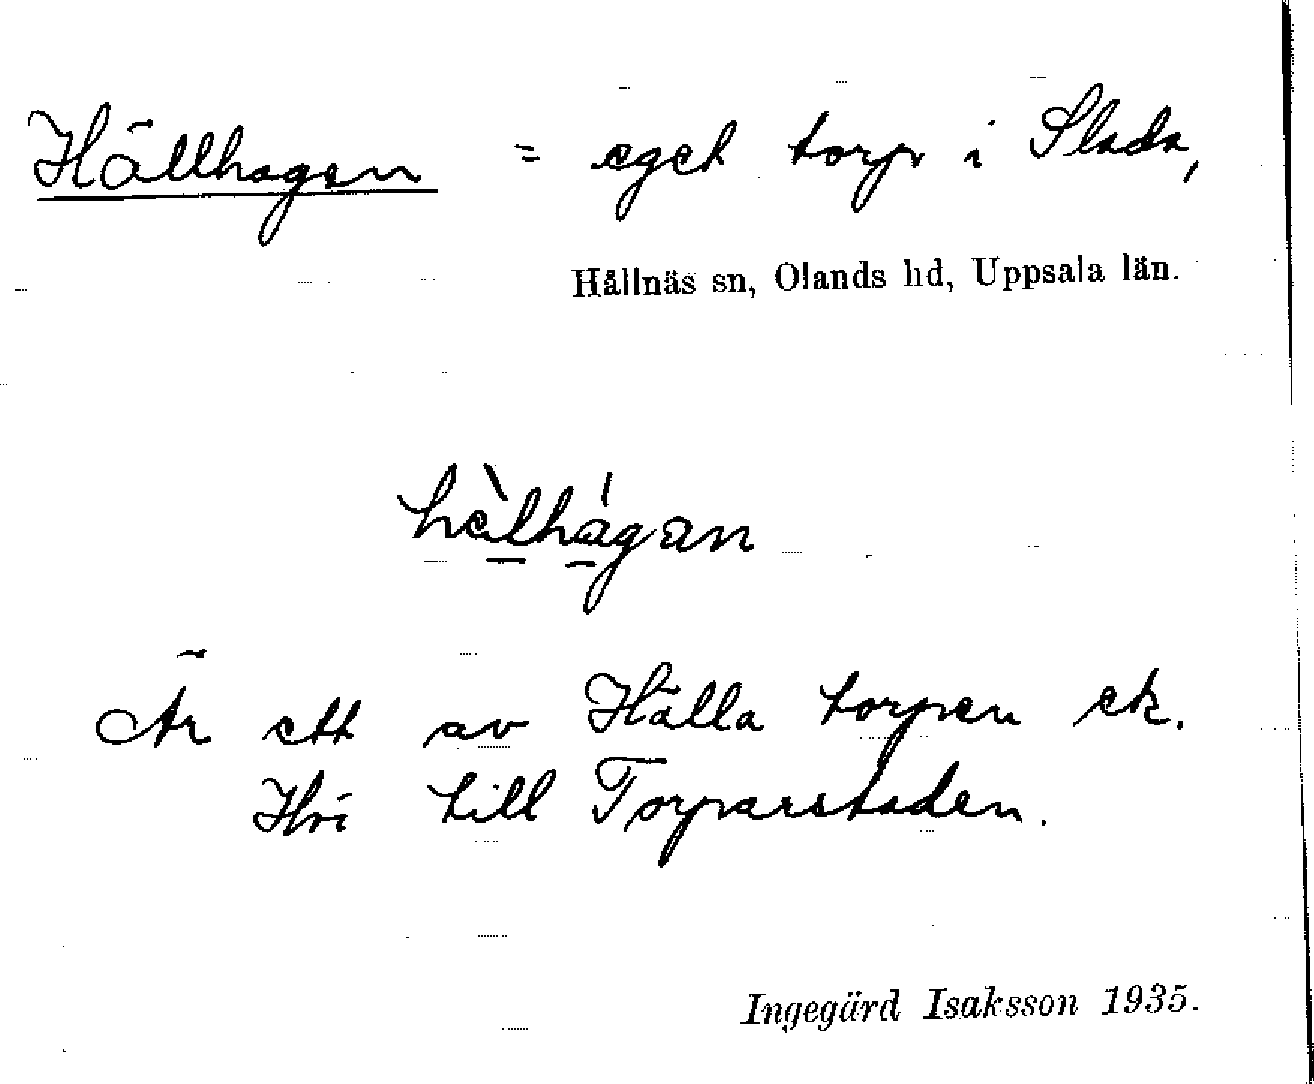 Hällhagen = eget torp i Slada,
Hållnäs sn, Olands hd, Uppsala län.
hèlhágan
Är ett av Hälla torpen ek.
till Torparstaden.
Ingegärd Isaksson 1935.